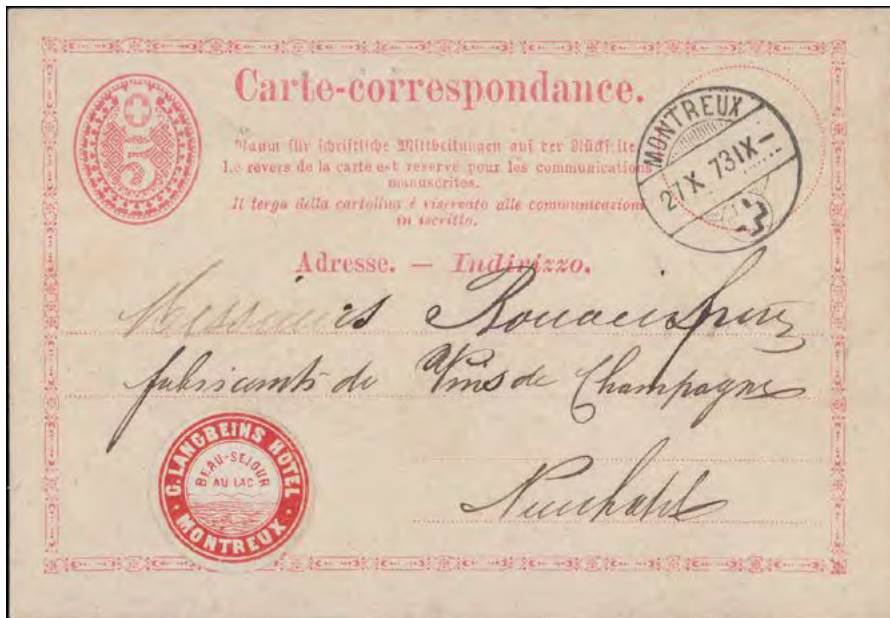 Carte-correspondance.
5
Raum für schriftliche Mittheilungen auf der Rückseite.
Le revers de la carte est reservé pour les communications
manuscrites.
Il tergo della cartolina é riservato alle communicazioni
in iscritto.
MONTREUX
27 X. 73 IX –
Adresse. — Indirizzo.
Messieurs Bouvier frères
fabricants de Vins de Champagne
Neuchatel
G. LANGBEINS HÔTEL
BEAU-SEJOUR
AU LAC
MONTREUX